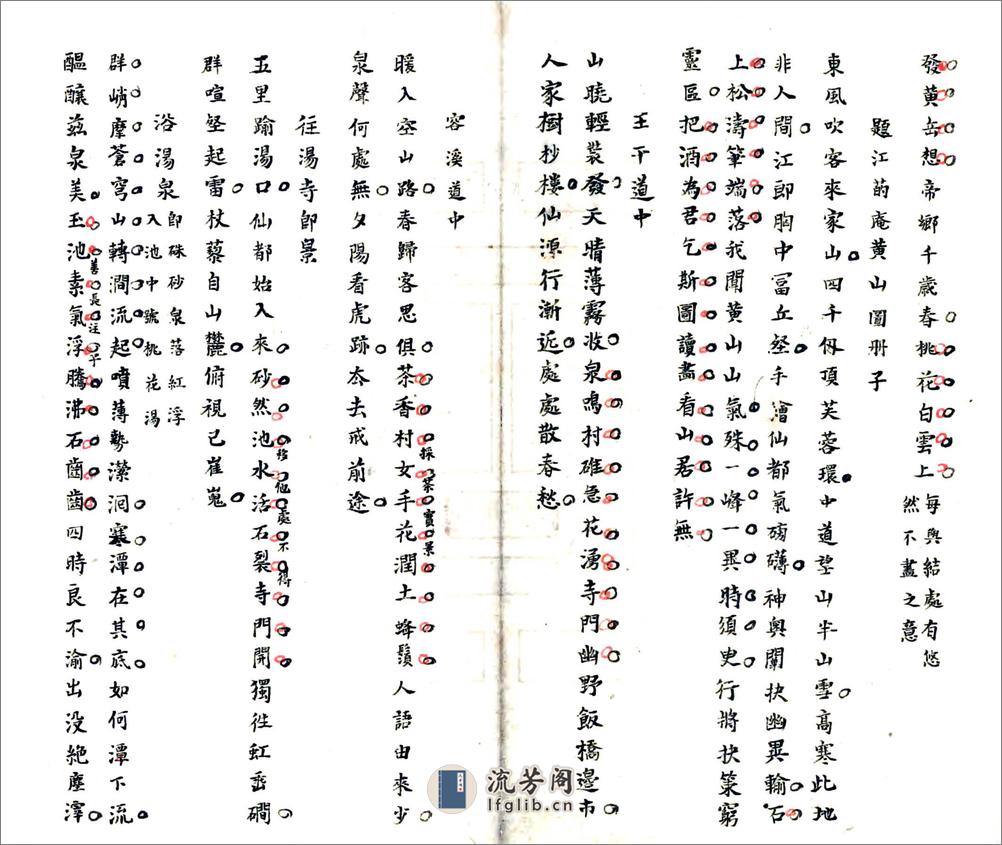 發黃岳想帝鄉千歲春桃花白雲上每與結處有悠
然不盡之意
題江菂庵黃山圖冊子
東風吹客來家山四千仭頂芙蓉環中道望山半山雪高寒此地
非人間江郎胸中富丘壑手繪仙都氣磅礴神輿闡抉幽異輸石
上松濤筆端落我聞黃山山氣殊一峰一異時須臾行將扶策窮
靈區把酒為君乞斯圖讀畫看山君許無
王干道中
山曉輕裝發天晴薄霧收泉鳴村碓急花湧寺門幽野飯橋邊市
人家樹杪樓仙源行漸近處處散春愁
容溪道中
暖入空山路春歸客思俱茶香村女手花潤土蜂鬚人語由來少
採茶實景
泉聲何處無夕陽看虎跡忝去戒前途
往湯寺即景
五里踰湯口仙都始入來砂然池水活石裂寺門開獨往虹垂磵
移他處不得
群喧壑起雷杖藜自山麓俯視已崔嵬
浴湯泉即硃砂泉落紅浮
入池中號桃花湯
群峭摩蒼穹山轉澗流起噴薄勢瀠洄寒潭在其底如何潭下流
醞釀茲泉美玉池素氣浮騰沸石齒齒四時良不渝出沒絕塵滓
善長注水
流芳阁
lfglib.cn